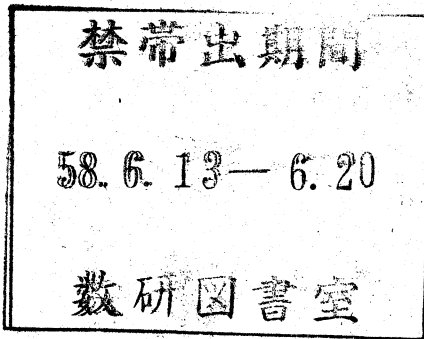 禁帯出期間
58. 6. 13 — 6. 20
数研図書室